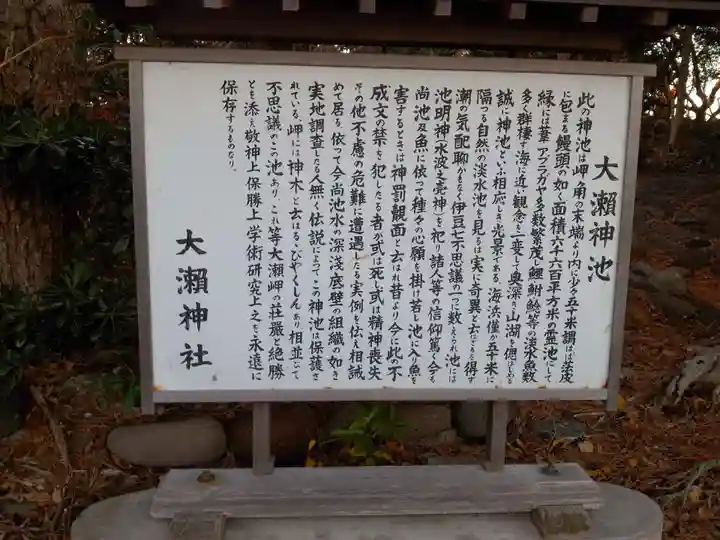 大瀬神池
此の神池は岬の角の末端より内に少く五十米謂はば法皮
に包まる饅頭の如く面積六千六百平方米の霊池にして
縁には葦アブラガヤ多数繁茂し鯉鮒鯰等の淡水魚数
多く群棲す海に近く観念を一変し奥深き山湖を偲ばしめる
誠に神池といふ相応しき光景である海浜僅か五十米に
隔つる自然の淡水池を見るは実に奇異と云はざるを得ず
潮の気配聊かもなく伊豆七不思議の一つに数えられ池には
池明神(水波之売神)を祀り諸人等の信仰篤く今も
尚池及魚に依って種々の心願を掛け若し池に入り魚を
害するときは神罰観面と云はれ昔より今に此の不
成文の禁を犯したる者が或は死し或は精神喪失
その他不慮の危難に遭遇したる実例を伝え相誡
めて居る依って今尚池水の深浅底壁の組織の如き
実地調査したる人無く伝説によってこの神池は保護さ
れている岬には神木と云はるるびやくしんあり相並いで
不思議のこの池ありこれ等大瀬岬の荘厳と絶勝
とも添え敬神上保勝上学術研究上之を永遠に
保存するものなり。
大瀬神社